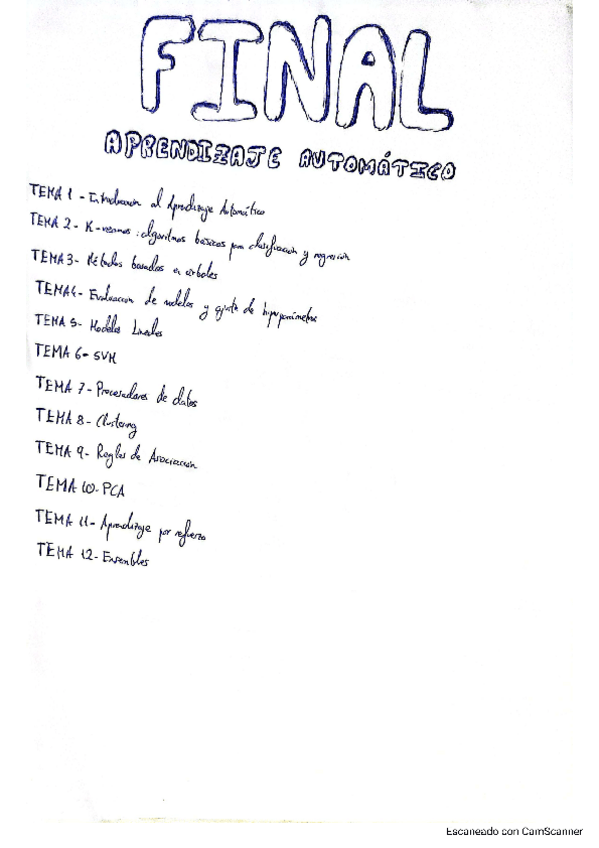 FINAL
APRENDIZAJE AUTOMÁTICO
TEMA 1 - Introducción al Aprendizaje Automático
TEMA 2 - K-vecinos: algoritmos básicos para clasificación y regresión
TEMA 3 - Métodos basados en árboles
TEMA 4 - Evaluación de modelos y ajuste de hiperparámetros
TEMA 5 - Modelos Lineales
TEMA 6 - SVM
TEMA 7 - Procesadores de datos
TEMA 8 - Clustering
TEMA 9 - Reglas de Asociación
TEMA 10 - PCA
TEMA 11 - Aprendizaje por refuerzo
TEMA 12 - Ensembles
Escaneado con CamScanner